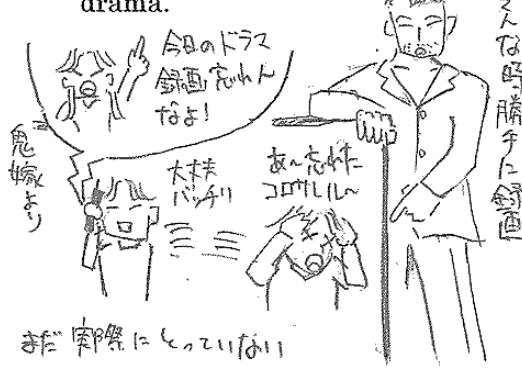 drama.
今日のドラマ
録画忘れん
なよ!
鬼嫁より
大丈夫
バッチリ
あ～忘れた
コロサレル～
そんな時勝手に録画
まだ実際にとっていない